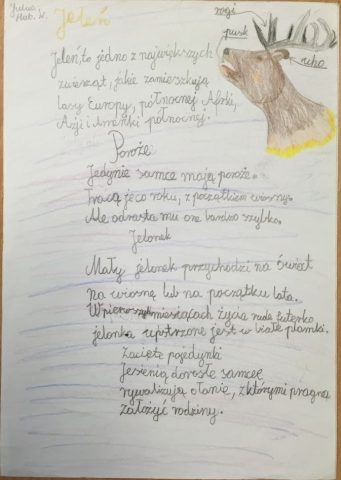 Julia
Jeleń
rogi
pysk
ucho
Jeleń, to jedno z największych
zwierząt, jakie zamieszkują
lasy Europy, północnej Afryki,
Azji i Ameryki północnej.
Poroże
Jedynie samce mają poroże.
Tracą je co roku, z początkiem wiosny.
Ale odrasta mu one bardzo szybko.
Jelonek
Mały jelonek przychodzi na świat
na wiosnę lub na początku lata.
W pierwszych miesiącach życia rude futerko
jelonka upstrzone jest w białe plamki.
Zacięte pojedynki
Jesienią dorosłe samce
rywalizują o łanie, z którymi pragną
założyć rodziny.